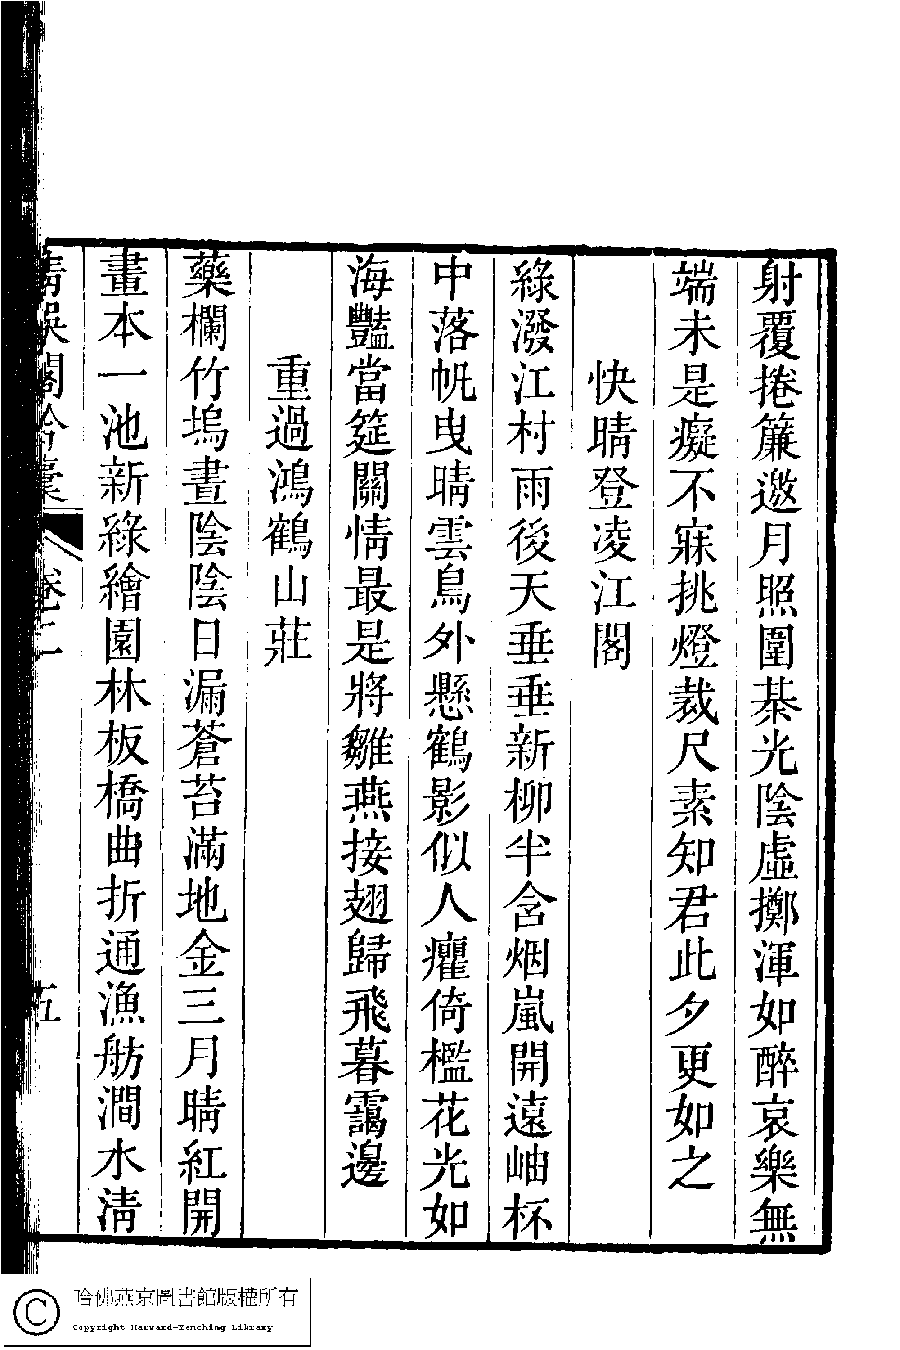 射覆捲簾邀月照圍棊光陰虛擲渾如醉哀樂無
端未是癡不寐挑燈裁尺素知君此夕更如之
快晴登凌江閣
綠潑江村雨後天垂垂新柳半含烟嵐開遠岫杯
中落帆曳晴雲鳥外懸鶴影似人癯倚檻花光如
海豔當筵關情最是將雛燕接翅歸飛暮靄邊
重過鴻鶴山莊
藥欄竹塢晝陰陰日漏蒼苔滿地金三月晴紅開
畫本一池新綠繪園林板橋曲折通漁舫澗水清
卷二
五
哈佛燕京圖書館版權所有
Copyright Harvard-Yenching Library